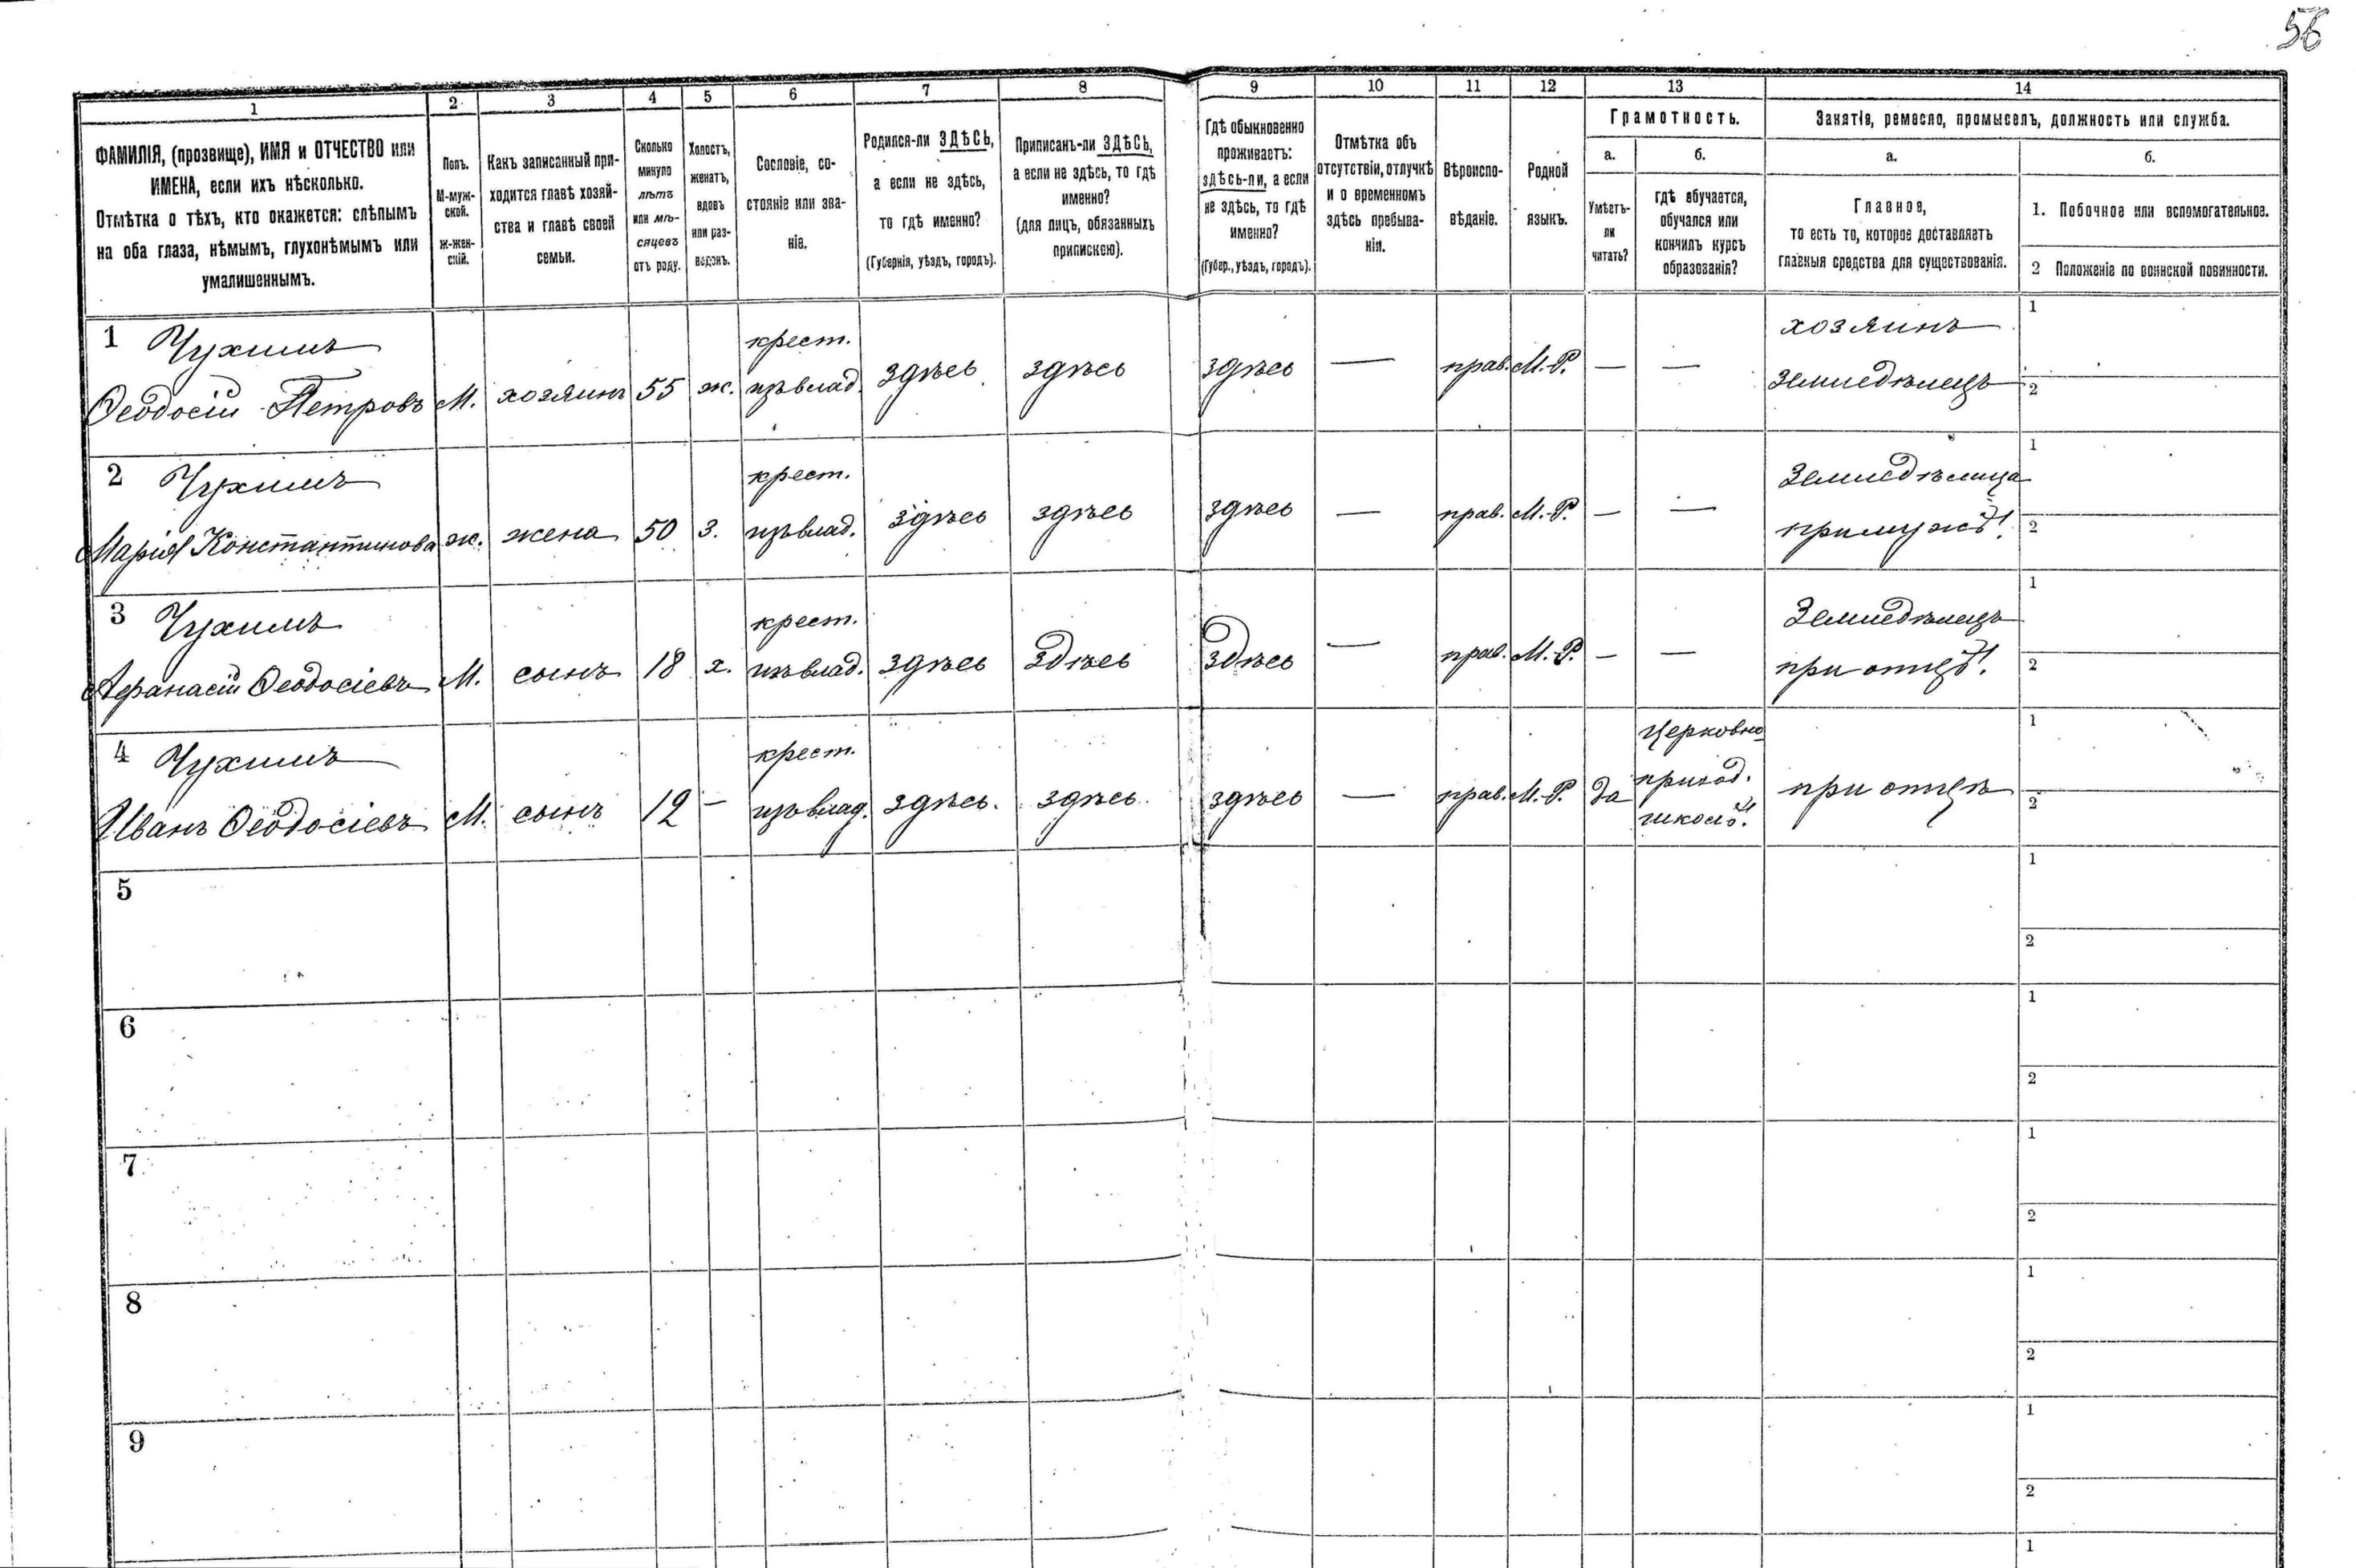 56
1
2
3
4
5
6
7
8
9
10
11
12
13
14
ФАМИЛІЯ, (прозвище), ИМЯ и ОТЧЕСТВО или
ИМЕНА, если ихъ нѣсколько.
Отмѣтка о тѣхъ, кто окажется: слѣпымъ
на оба глаза, нѣмымъ, глухонѣмымъ или
умалишеннымъ.
Полъ.
М-муж-
ской.
ж-жен-
скій.
Какъ записанный при-
ходится главѣ хозяй-
ства и главѣ своей
семьи.
Сколько
минуло
лѣтъ
или мѣ-
сяцевъ
отъ роду.
Холостъ,
женатъ,
вдовъ
или раз-
веденъ.
Сословіе, со-
стояніе или зва-
ніе.
Родился-ли ЗДѢСЬ,
а если не здѣсь,
то гдѣ именно?
(Губернія, уѣздъ, городъ).
Приписанъ-ли ЗДѢСЬ,
а если не здѣсь, то гдѣ
именно?
(для лицъ, обязанныхъ
припискою).
Гдѣ обыкновенно
проживаетъ:
здѣсь-ли, а если
не здѣсь, то гдѣ
именно?
(Губер., уѣздъ, городъ).
Отмѣтка объ
отсутствіи, отлучкѣ
и о временномъ
здѣсь пребыва-
ніи.
Вѣроиспо-
вѣданіе.
Родной
языкъ.
Грамотность.
а.
б.
Умѣетъ-
ли
читать?
гдѣ обучается,
обучался или
кончилъ курсъ
образованія?
Занятіе, ремесло, промыселъ, должность или служба.
а.
б.
Главное,
то есть то, которое доставляетъ
главныя средства для существованія.
1. Побочное или вспомогательное.
2 Положеніе по воинской повинности.
1 Чухимъ
Ѳеодосій Петровъ
М.
хозяинъ
55
ж.
крест.
изъ влад.
здѣсь
здѣсь
здѣсь
—
прав.
М.-Р.
—
—
хозяинъ
земледѣлецъ
1
2
2 Чухимъ
Марія Константинова
ж.
жена
50
з.
крест.
изъ влад.
здѣсь
здѣсь
здѣсь
—
прав.
М.-Р.
—
—
Земледѣлица
при мужѣ
1
2
3 Чухимъ
Афанасій Ѳеодосіевъ
М.
сынъ
18
х.
крест.
изъ влад.
здѣсь
здѣсь
здѣсь
—
прав.
М.-Р.
—
—
Земледѣлецъ
при отцѣ
1
2
4 Чухимъ
Иванъ Ѳеодосіевъ
М.
сынъ
12
—
крест.
изъ влад.
здѣсь.
здѣсь.
здѣсь
—
прав.
М.-Р.
да
церковно
приход.
школѣ
при отцѣ
1
2
5
1
2
6
1
2
7
1
2
8
1
2
9
1
2
1